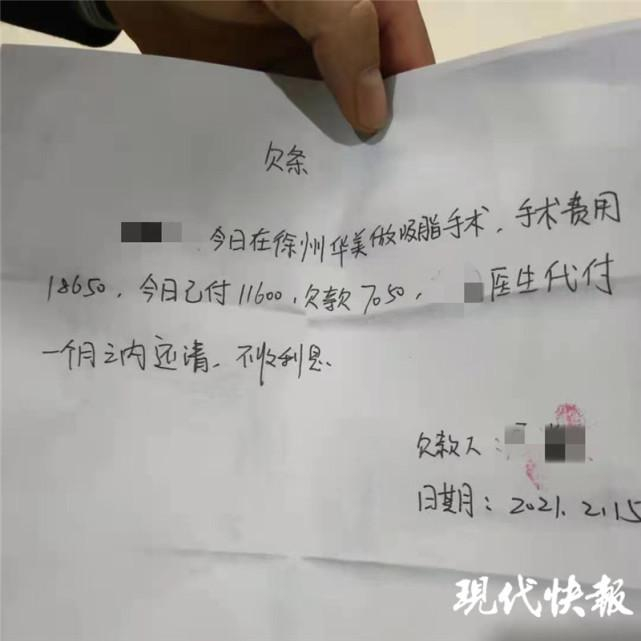 欠条
今日在徐州华美做吸脂手术，手术费用
18650，今日已付11600，欠款7050，医生代付
一个月之内还清，不收利息、
欠款人：
日期：2021.2.15
现代快報